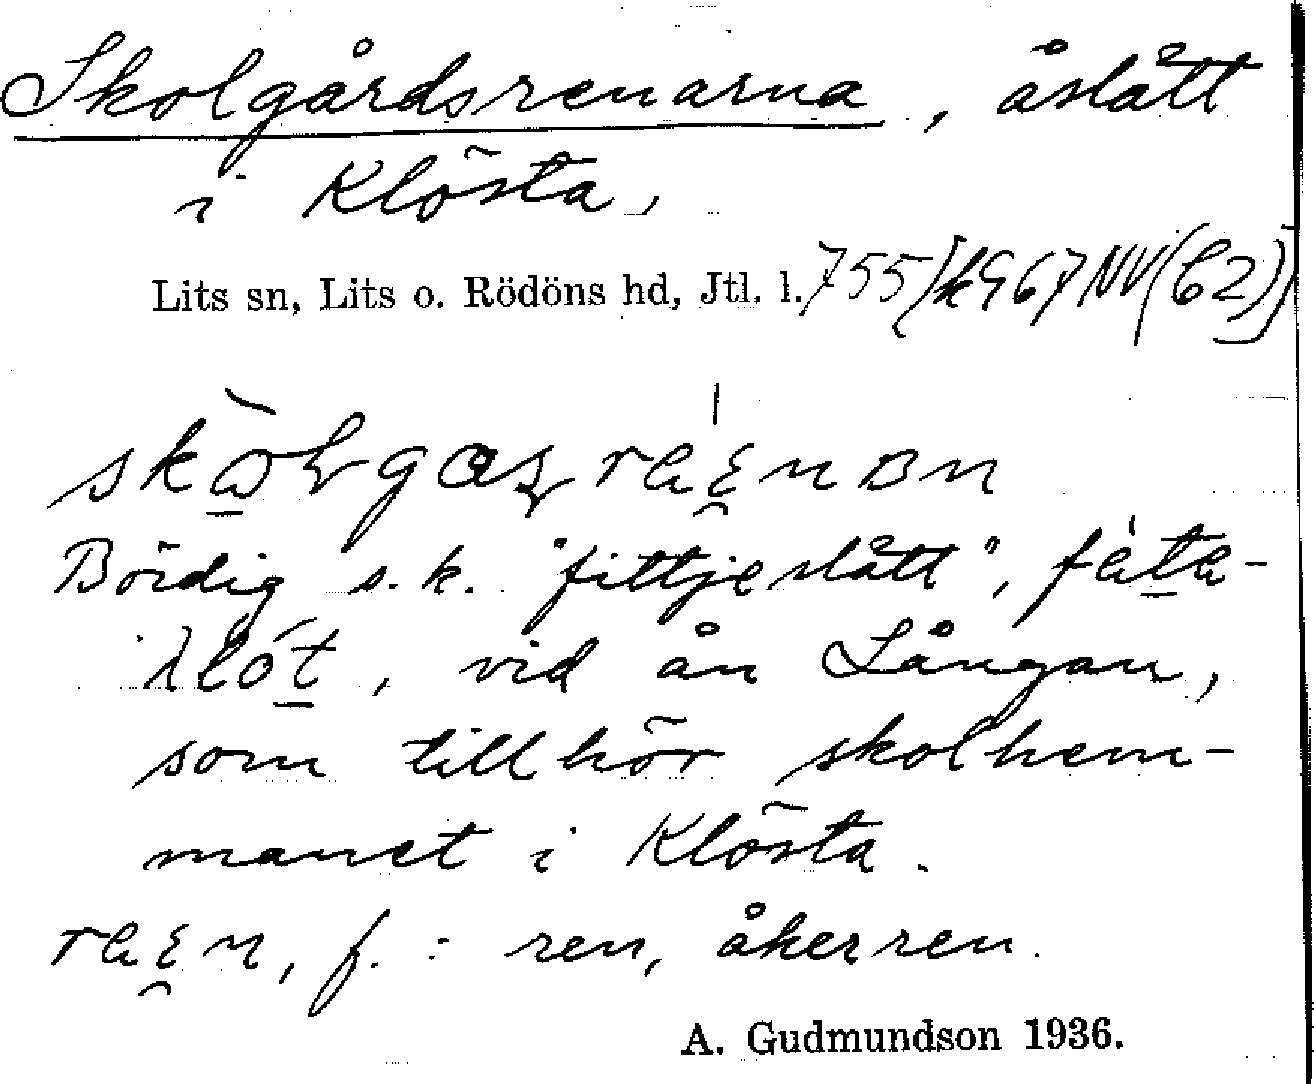 Skolgårdsrenarna, åslått
i Klösta,
Lits sn, Lits o. Rödöns hd, Jtl. l. 755/k967NV(62)
Bördig s.k. "fittjeslått",
, vid ån Långan,
som tillhör skolhem-
manet i Klösta.
f. : ren, åkerren.
A. Gudmundson 1936.